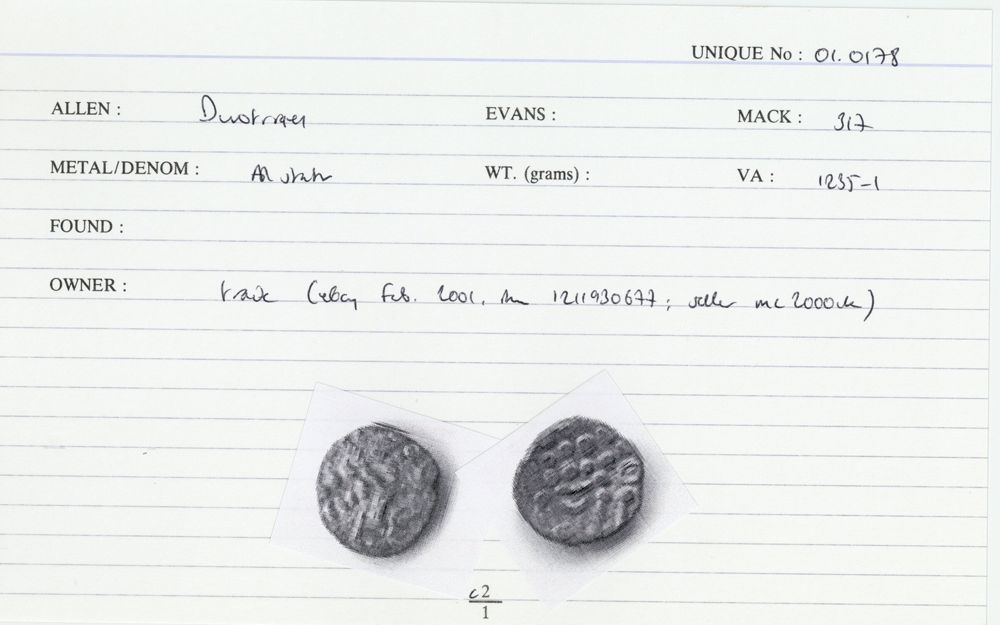 UNIQUE No : 01.0178
ALLEN : Durotriges EVANS : MACK : 317
METAL/DENOM : AR stater WT. (grams) : VA : 1235-1
FOUND :
OWNER : trade (ebay Feb. 2001, 1211930677; seller mc2000uk)
c2
1